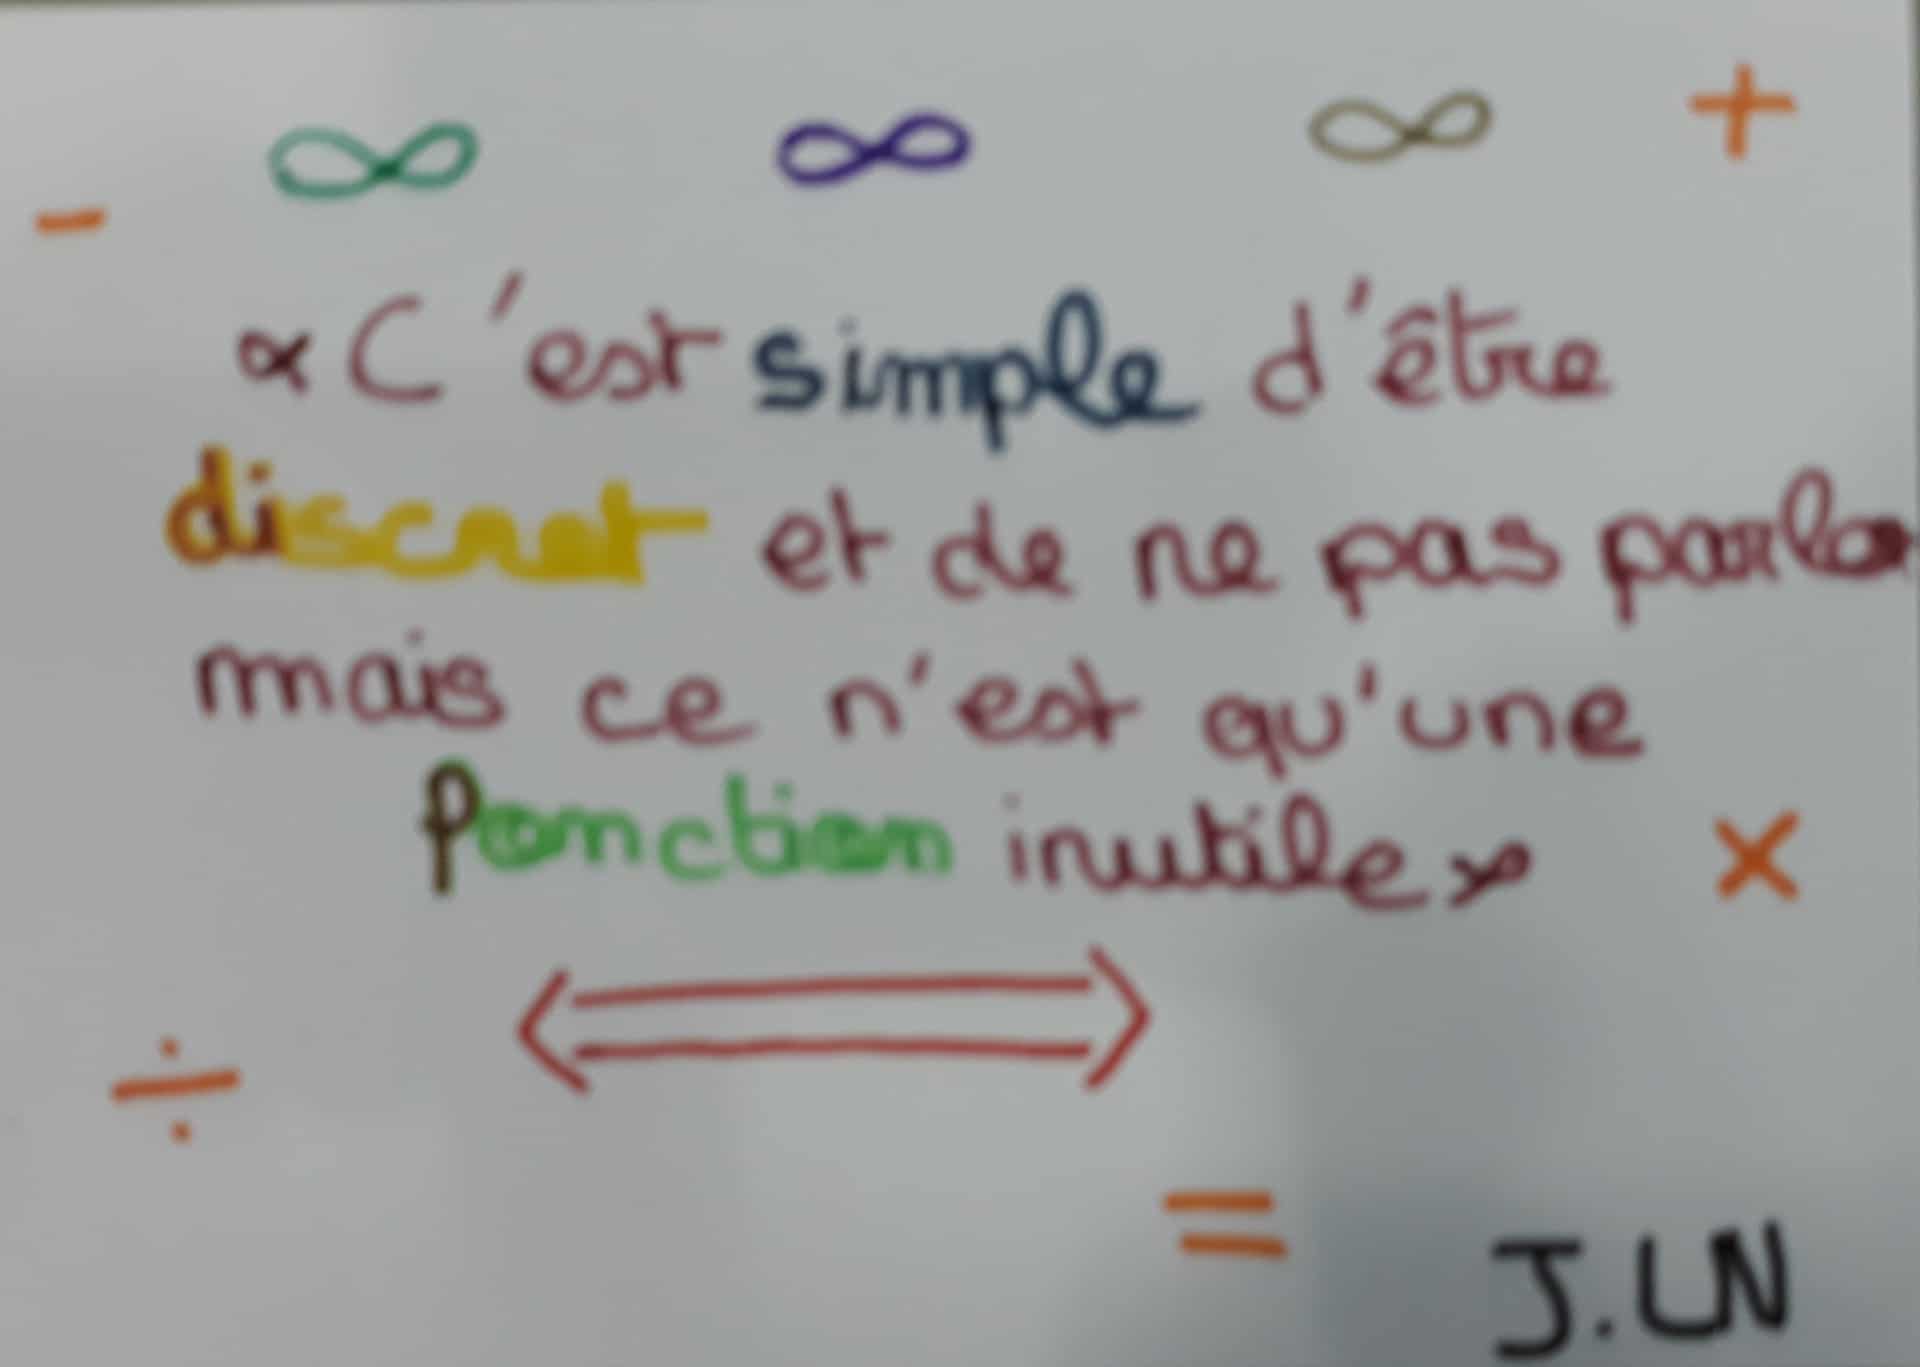 ∞ ∞ ∞ +
-
«C'est simple d'être
discret et de ne pas parler
mais ce n'est qu'une
fonction inutile»
×
÷
=
J.LN